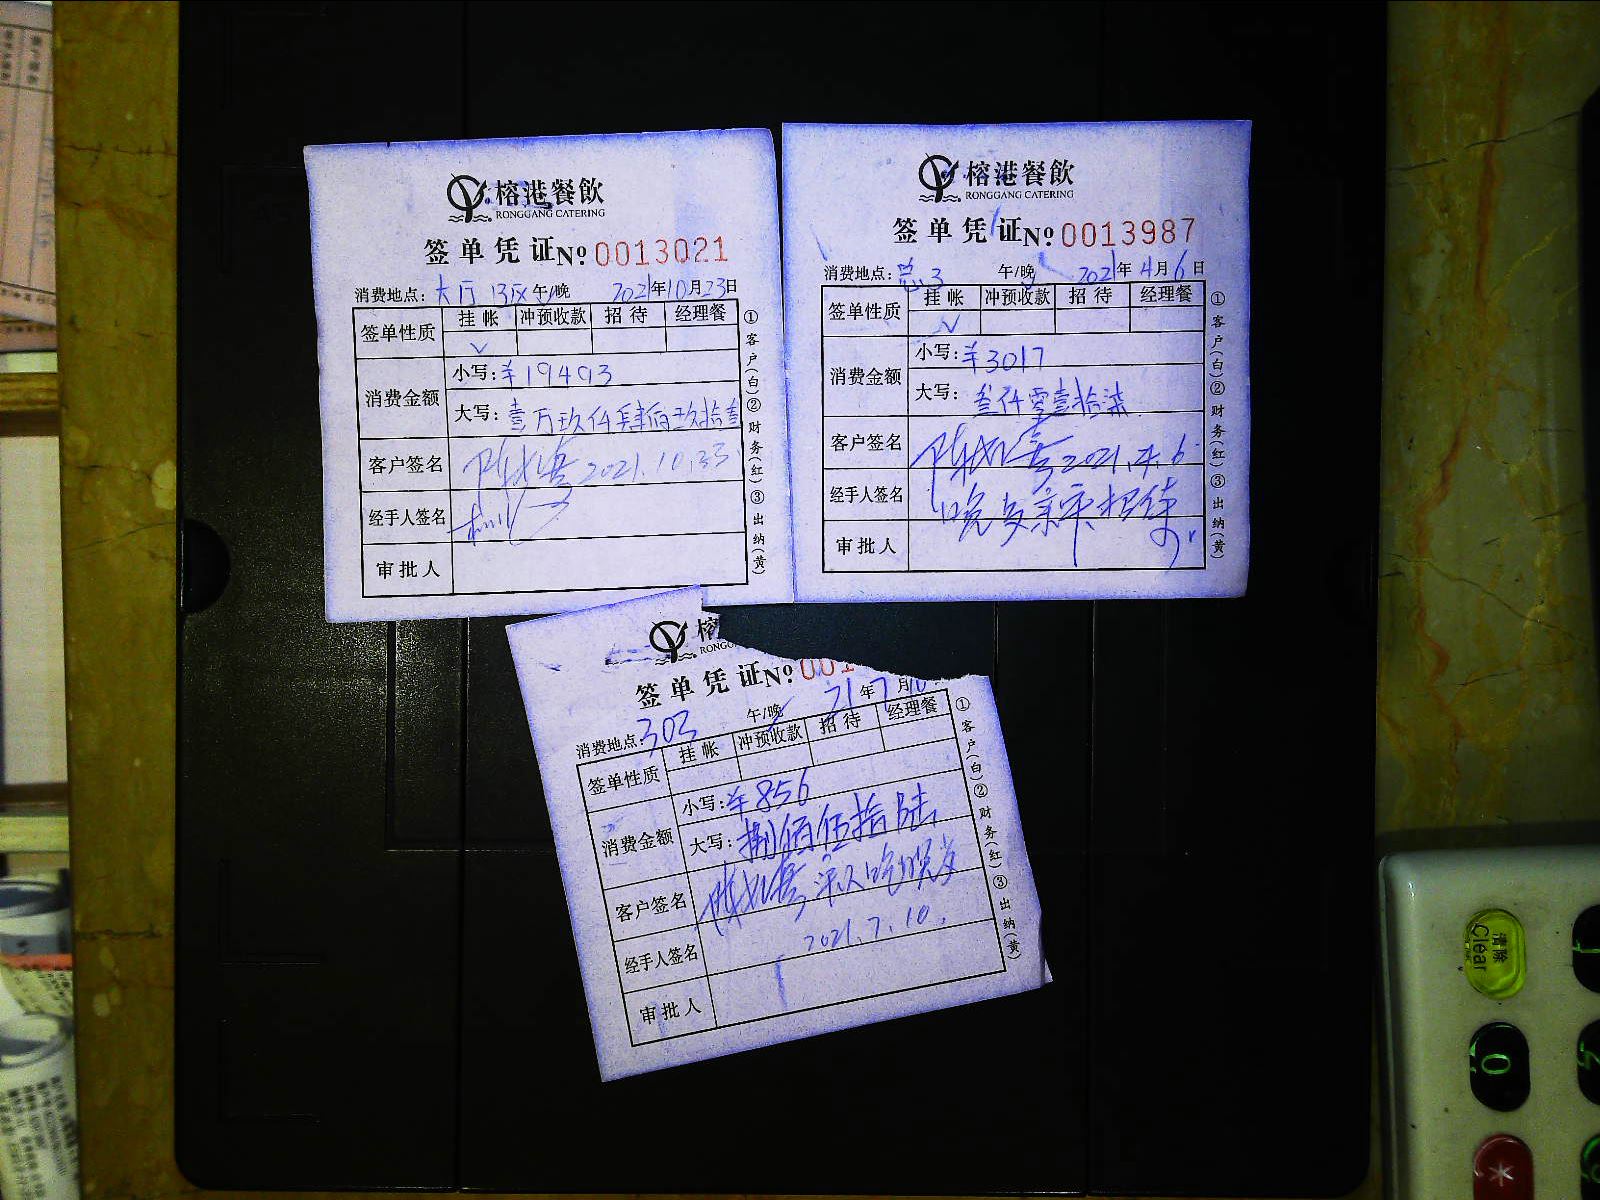 榕港餐飲
RONGGANG CATERING
签单凭证 №0013021
消费地点：大厅13区 午/晚 2021年10月23日
签单性质 挂帐 冲预收款 招待 经理餐
✓
消费金额 小写：¥19493
大写：壹万玖仟肆佰玖拾叁
客户签名 2021.10.23.
经手人签名
审批人
①客户(白)②财务(红)③出纳(黄)
榕港餐飲
RONGGANG CATERING
签单凭证 №0013987
消费地点：总3 午/晚 2021年4月6日
签单性质 挂帐 冲预收款 招待 经理餐
✓
消费金额 小写：¥3017
大写：叁仟零壹拾柒
客户签名 2021.4.6.
经手人签名
审批人
①客户(白)②财务(红)③出纳(黄)
榕
RONGG
签单凭证 №001
消费地点：303 午/晚 21年7月10
签单性质 挂帐 冲预收款 招待 经理餐
消费金额 小写：¥856
大写：捌佰伍拾陆
客户签名
经手人签名 2021.7.10.
审批人
①客户(白)②财务(红)③出纳(黄)
清除
Clear
0
*